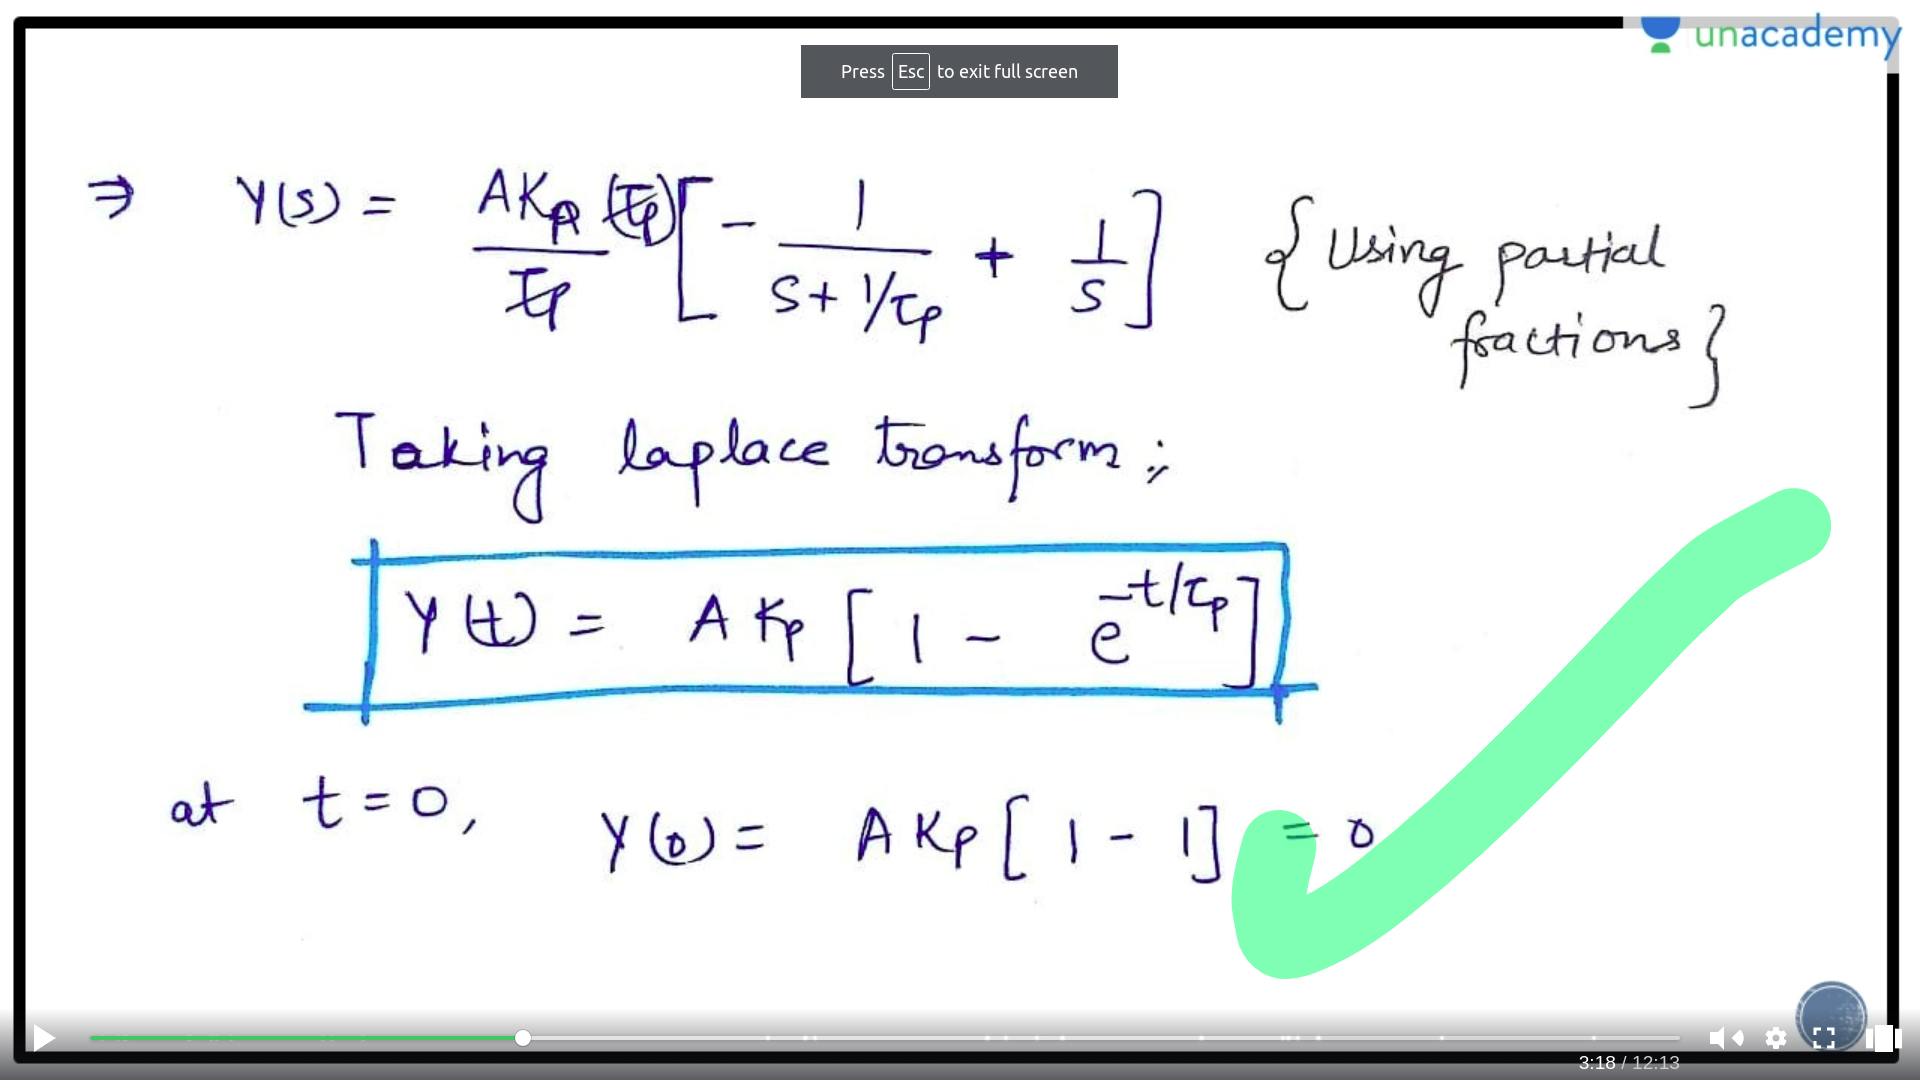 unacademy
Press Esc to exit full screen
⇒ Y(s) = AKp (τp) / τp [ - 1 / (s + 1/τp) + 1 / s ] { Using partial
fractions }
Taking laplace transform ;
Y(t) = A Kp [ 1 - e^(-t/τp) ]
at t = 0, Y(0) = A Kp [ 1 - 1 ] = 0
3:18 / 12:13